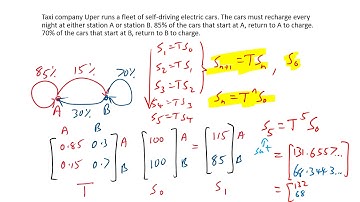 Taxi company Uper runs a fleet of self-driving electric cars. The cars must recharge every
night at either station A or station B. 85% of the cars that start at A, return to A to charge.
70% of the cars that start at B, return to B to charge.
85% 15% 70%
A B
30%
S₁ = TS₀
S₂ = TS₁
S₃ = TS₂
S₄ = TS₃
S₅ = TS₄
Sₙ₊₁ = TSₙ, S₀
Sₙ = TⁿS₀
A B
[0.85 0.3] A [100] A = [115] A
[0.15 0.7] B [100] B [85] B
T S₀ S₁
S₅ = T⁵S₀
= [131.6557...]
[68.343...]
= [132]
[68]